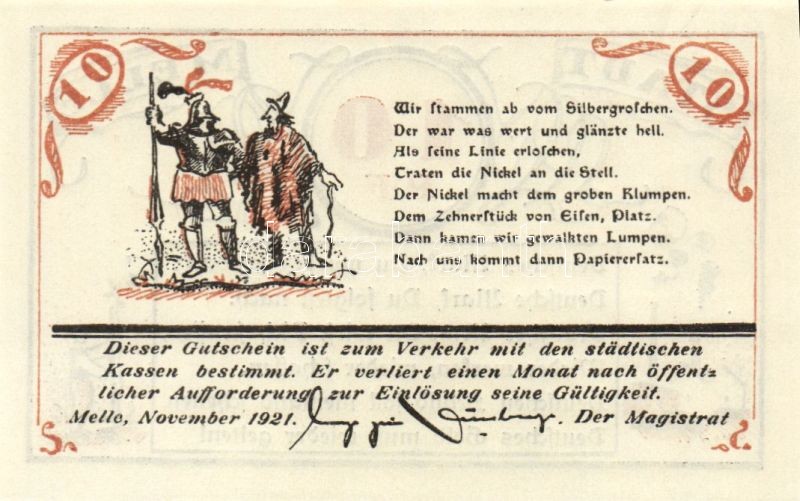 10
10
Wir ſtammen ab vom Silbergroſchen.
Der war was wert und glänzte hell.
Als ſeine Linie erloſchen,
Traten die Nickel an die Stell.
Der Nickel macht dem groben Klumpen.
Dem Zehnerſtück von Eiſen, Platz.
Dann kamen wir gewalkten Lumpen.
Nach uns kommt dann Papiererſatz.
Dieser Gutschein ist zum Verkehr mit den städtischen
Kassen bestimmt. Er verliert einen Monat nach öffent⸗
licher Aufforderung zur Einlösung seine Gültigkeit.
Melle, November 1921. Der Magistrat